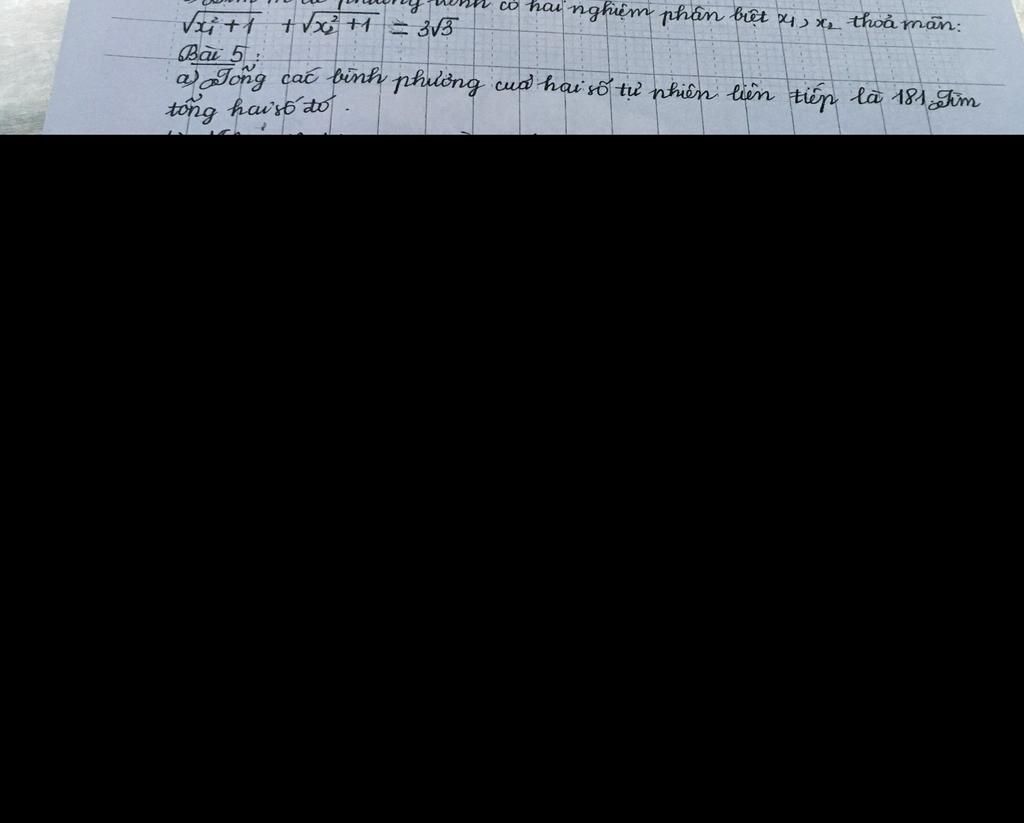 phương trình có hai nghiệm phân biệt x₁, x₂ thoả mãn:
√(x₁²+1) + √(x₂²+1) = 3√3
Bài 5:
a) Tổng các bình phương của hai số tự nhiên liên tiếp là 181. Tìm
tổng hai số đó.